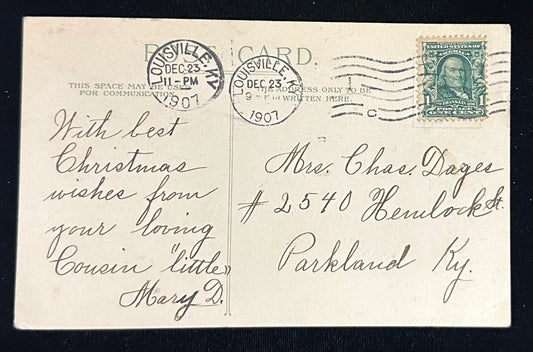 POST CARD.
LOUISVILLE, KY
DEC 23
11-PM
1907
LOUISVILLE, K
DEC 23
9-
1907
UNITED STATES OF AMERICA
FRANKLIN
1 1
ONE CENT
THIS SPACE MAY BE USED
FOR COMMUNICATION
ADDRESS ONLY TO BE
WRITTEN HERE.
With best
Christmas
wishes from
your loving
Cousin "little"
Mary D.
Mrs. Chas. Dages
# 2540 Hemlock St.
Parkland Ky.